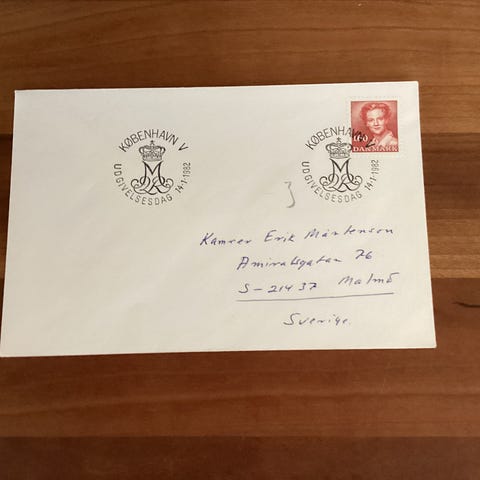 KØBENHAVN V
UDGIVELSESDAG 14-1-1982
KØBENHAVN V
UDGIVELSESDAG 14-1-1982
DANMARK
Kamrer Erik Mårtenson
Amiralsgatan 76
S-214 37 Malmö
Sverige.